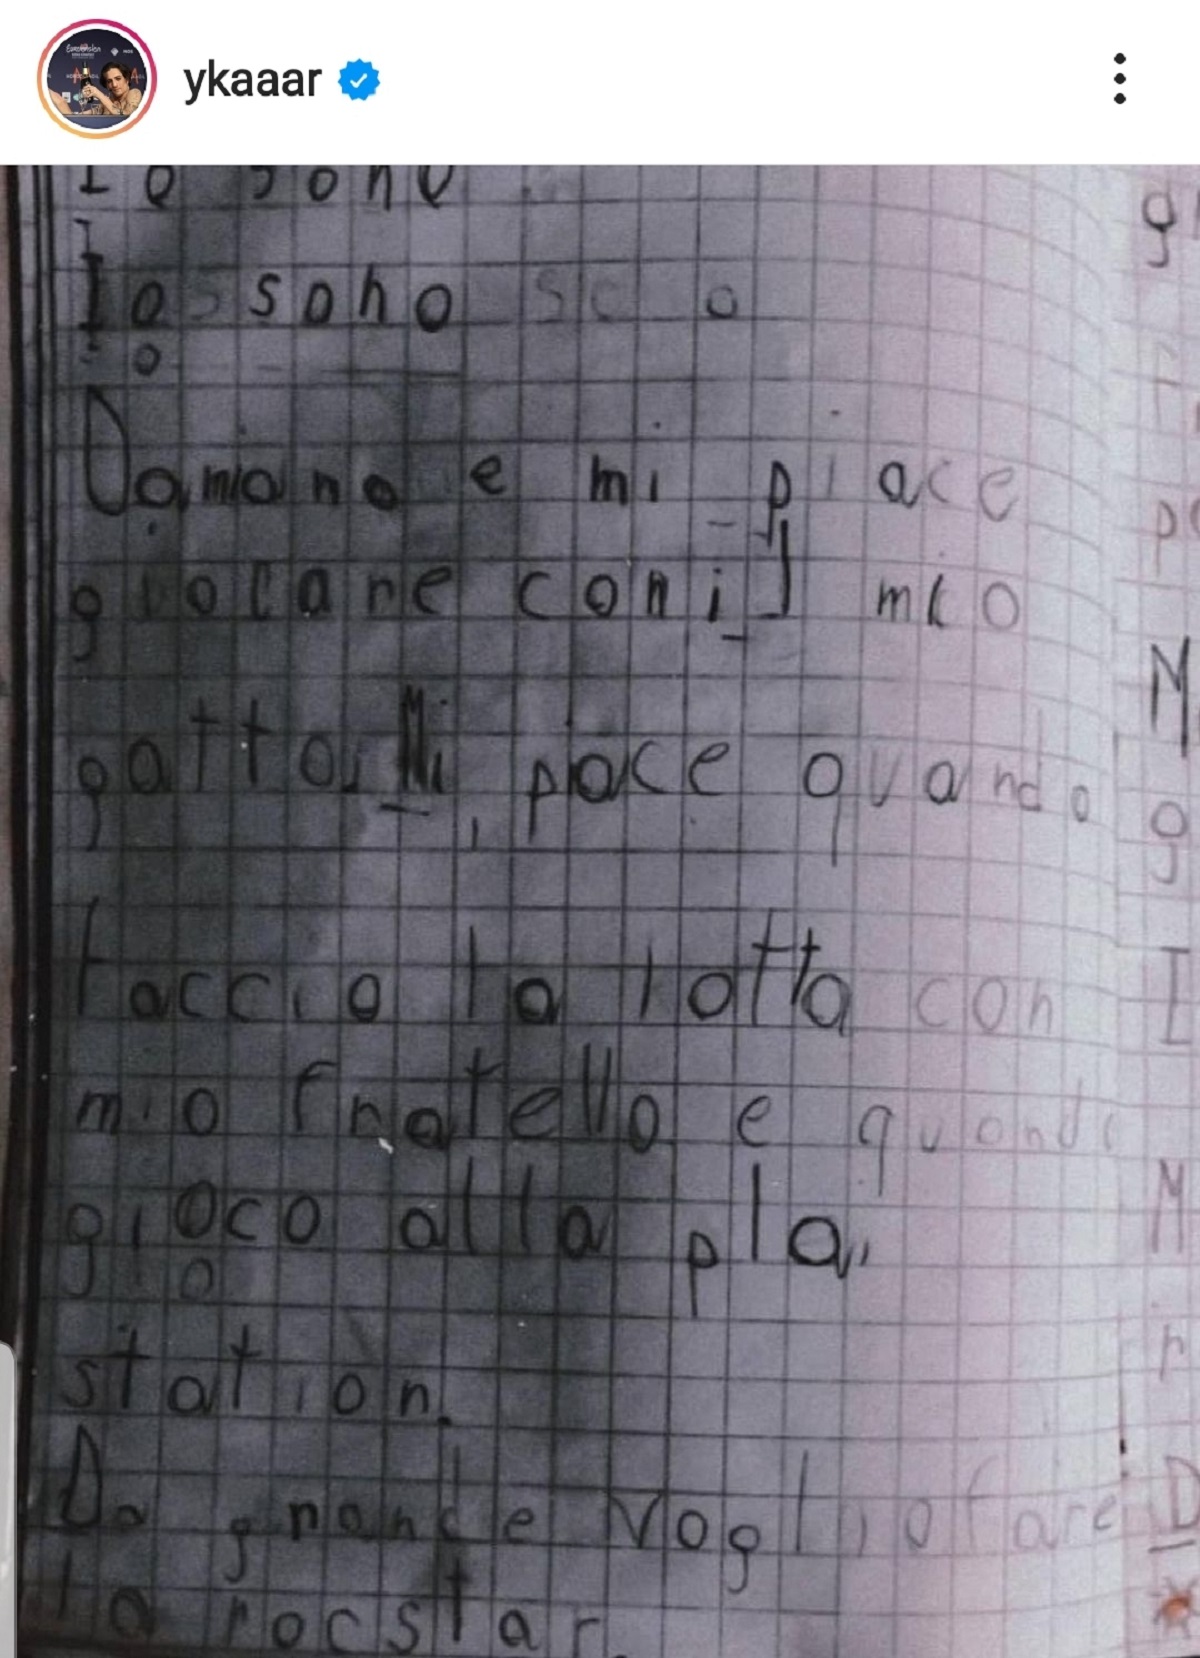 ykaaar
Io sono
Io sono
Damiano e mi piace
giocare con il mio
gatto. Mi piace quando
faccio la lotta con
mio fratello e quando
gioco alla pla,
station.
Da grande voglio fare
la rocstar.